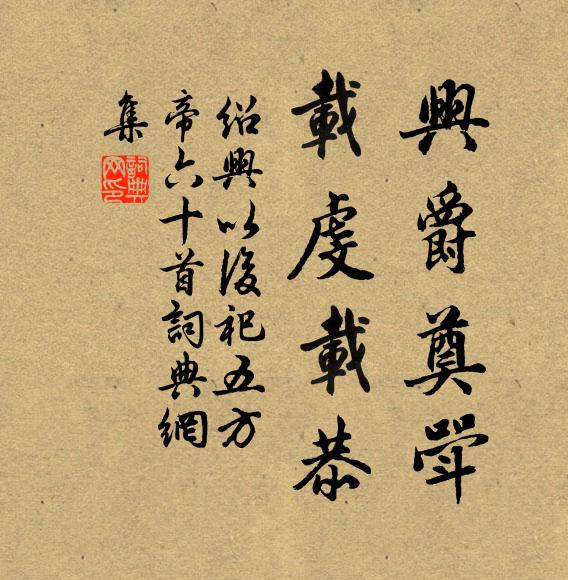 興爵奠斝
載虔載恭
紹興以後祀五方
帝六十首詞典網
集
詞典网印